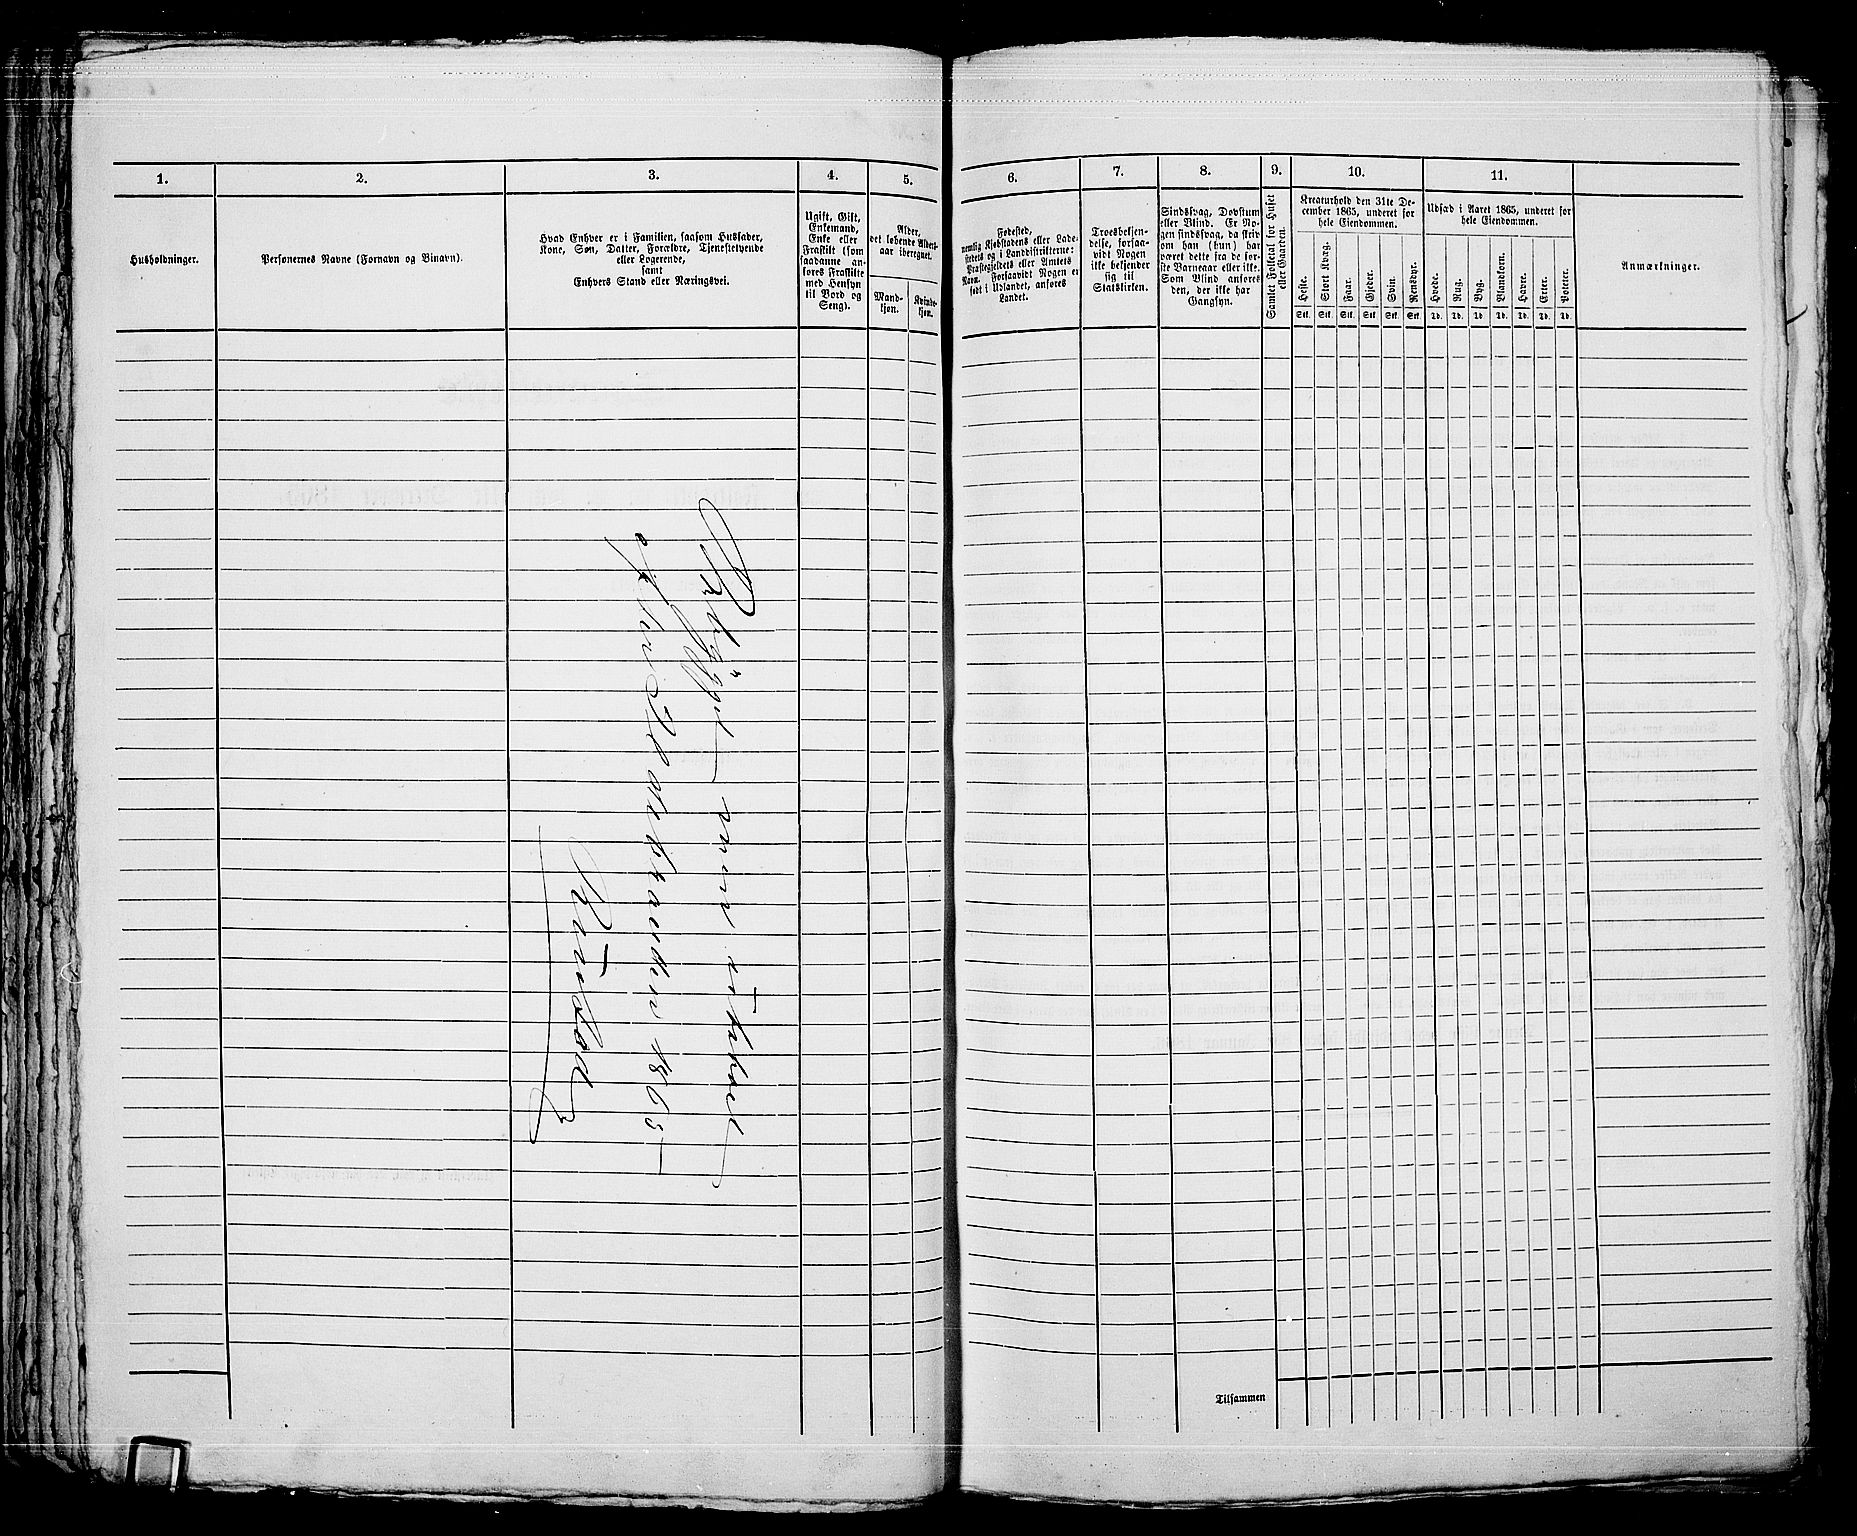 1.
2.
3.
4.
5.
6.
7.
8.
9.
10.
11.
Husholdninger.
Personernes Navne (Fornavn og Binavn).
Hvad Enhver er i Familien, saasom Husfader,
Kone, Søn, Datter, Forældre, Tjenestetyende
eller Logerende,
samt
Enhvers Stand eller Næringsvei.
Ugift, Gift,
Enkemand,
Enke eller
Fraskilt (som
saadanne an-
føres Fraskilte
med Hensyn
til Bord og
Seng).
Alder,
det løbende Alders-
aar iberegnet.
Mand-
kjøn.
Kvinde-
kjøn.
Fødested,
nemlig Kjøbstadens eller Lade-
stedets og i Landdistrikterne:
Præstegjeldets eller Amtets
Navn. Forsaavidt Nogen er
født i Udlandet, anføres
Landet.
Troesbekjen-
delse, forsaa-
vidt Nogen
ikke bekjender
sig til
Statskirken.
Sindssvag, Døvstum
eller Blind. Er No-
gen sindssvag, da skriv
om han (hun) har
været dette fra de før-
ste Barneaar eller ikke.
Som Blind anføres
den, der ikke har
Gangsyn.
Samlet Folketal for Huset
eller Gaarden.
Kreaturhold den 31te De-
cember 1865, underet for
hele Eiendommen.
Heste.
Stort Kvæg.
Faar.
Gjeder.
Svin.
Rensdyr.
Stk. Stk. Stk. Stk. Stk. Stk.
Udsæd i Aaret 1865, underet for
hele Eiendommen.
Hvede.
Rug.
Byg.
Blandkorn.
Havre.
Erter.
Poteter.
Td. Td. Td. Td. Td. Td. Td.
Anmærkninger.
Bebygget men
1865
Tilsammen